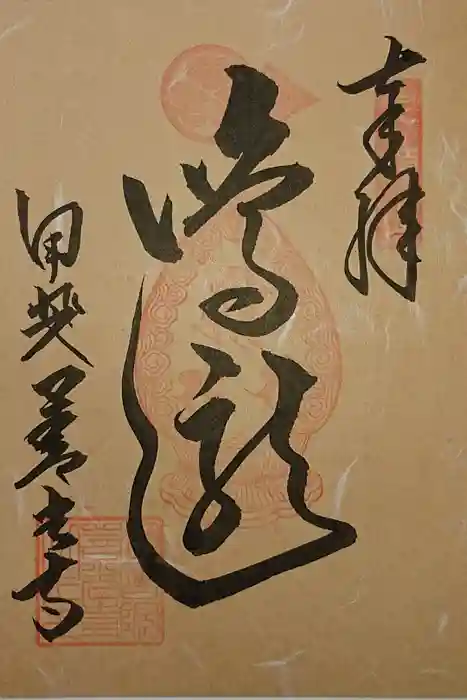 奉拝
鳴龍
甲斐善光寺